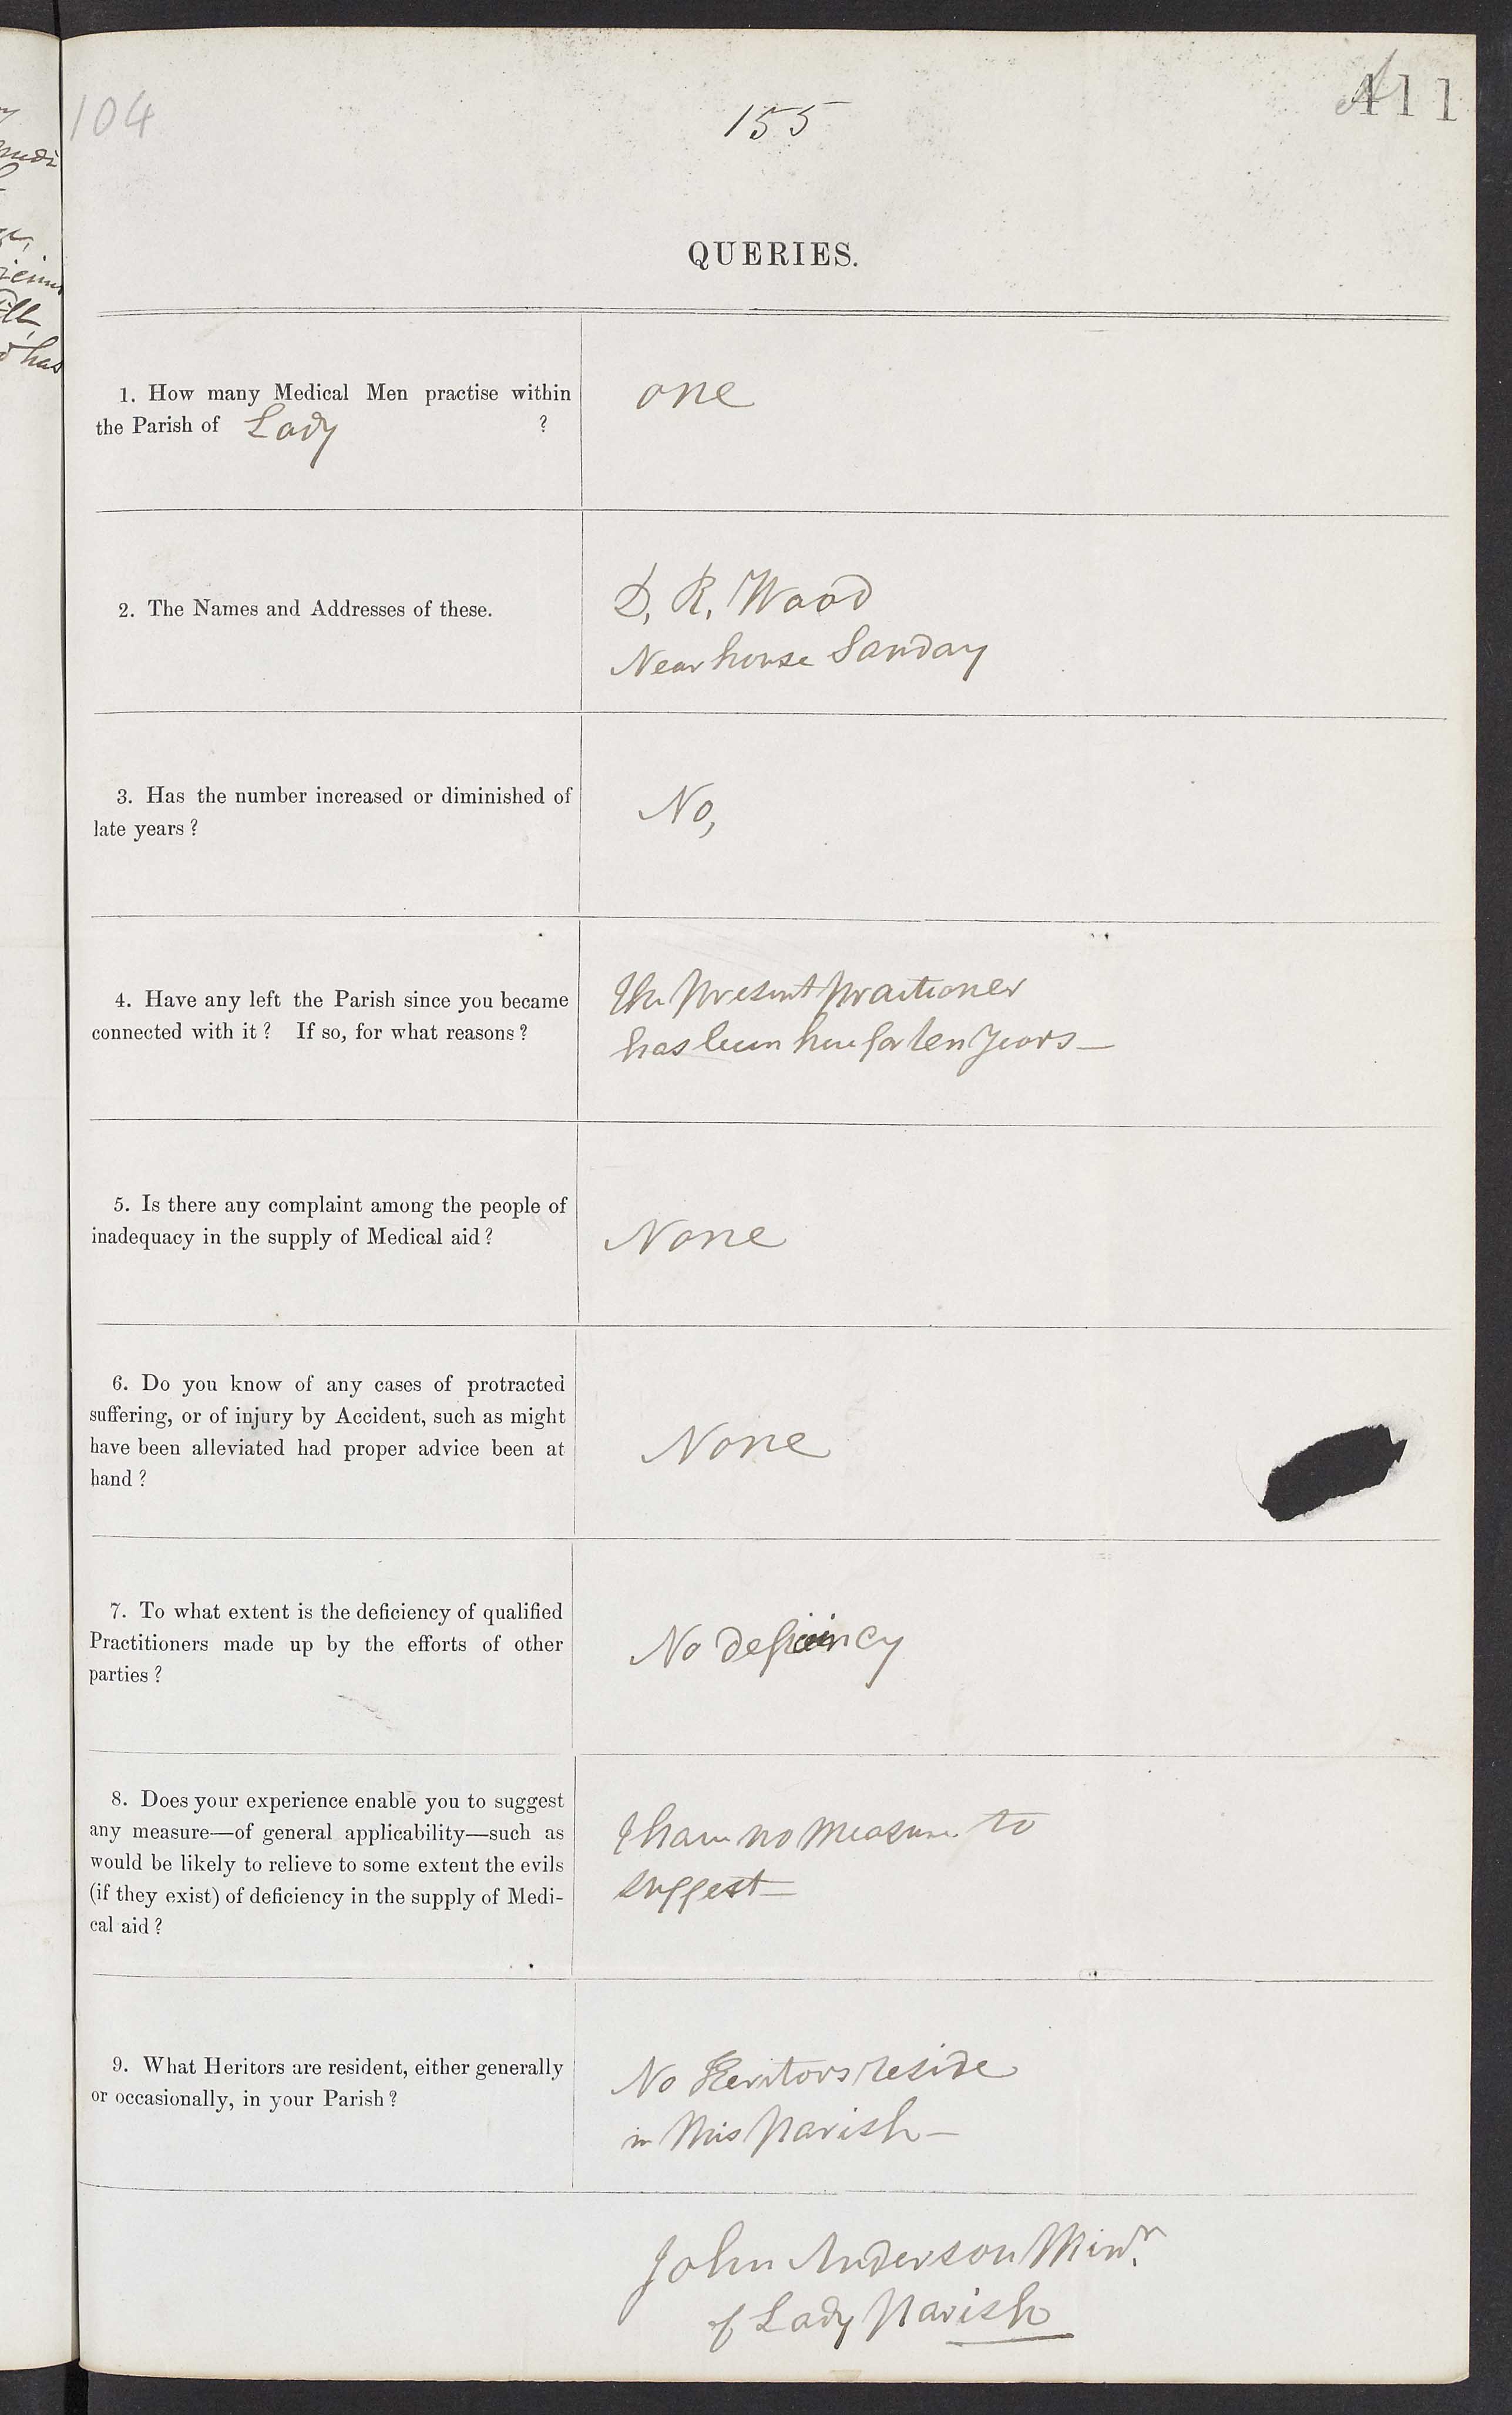 104
155
411
QUERIES.
1. How many Medical Men practise within
the Parish of Lady ?
one
2. The Names and Addresses of these.
D. R. Wood
Nearhouse Sanday
3. Has the number increased or diminished of
late years ?
No,
4. Have any left the Parish since you became
connected with it ? If so, for what reasons ?
The present practioner
has been here for ten years —
5. Is there any complaint among the people of
inadequacy in the supply of Medical aid ?
None
6. Do you know of any cases of protracted
suffering, or of injury by Accident, such as might
have been alleviated had proper advice been at
hand ?
None
7. To what extent is the deficiency of qualified
Practitioners made up by the efforts of other
parties ?
No deficiency
8. Does your experience enable you to suggest
any measure—of general applicability—such as
would be likely to relieve to some extent the evils
(if they exist) of deficiency in the supply of Medi-
cal aid ?
I have no measure to
suggest —
9. What Heritors are resident, either generally
or occasionally, in your Parish ?
No Heritors reside
in this Parish —
John Anderson Minr.
of Lady Parish